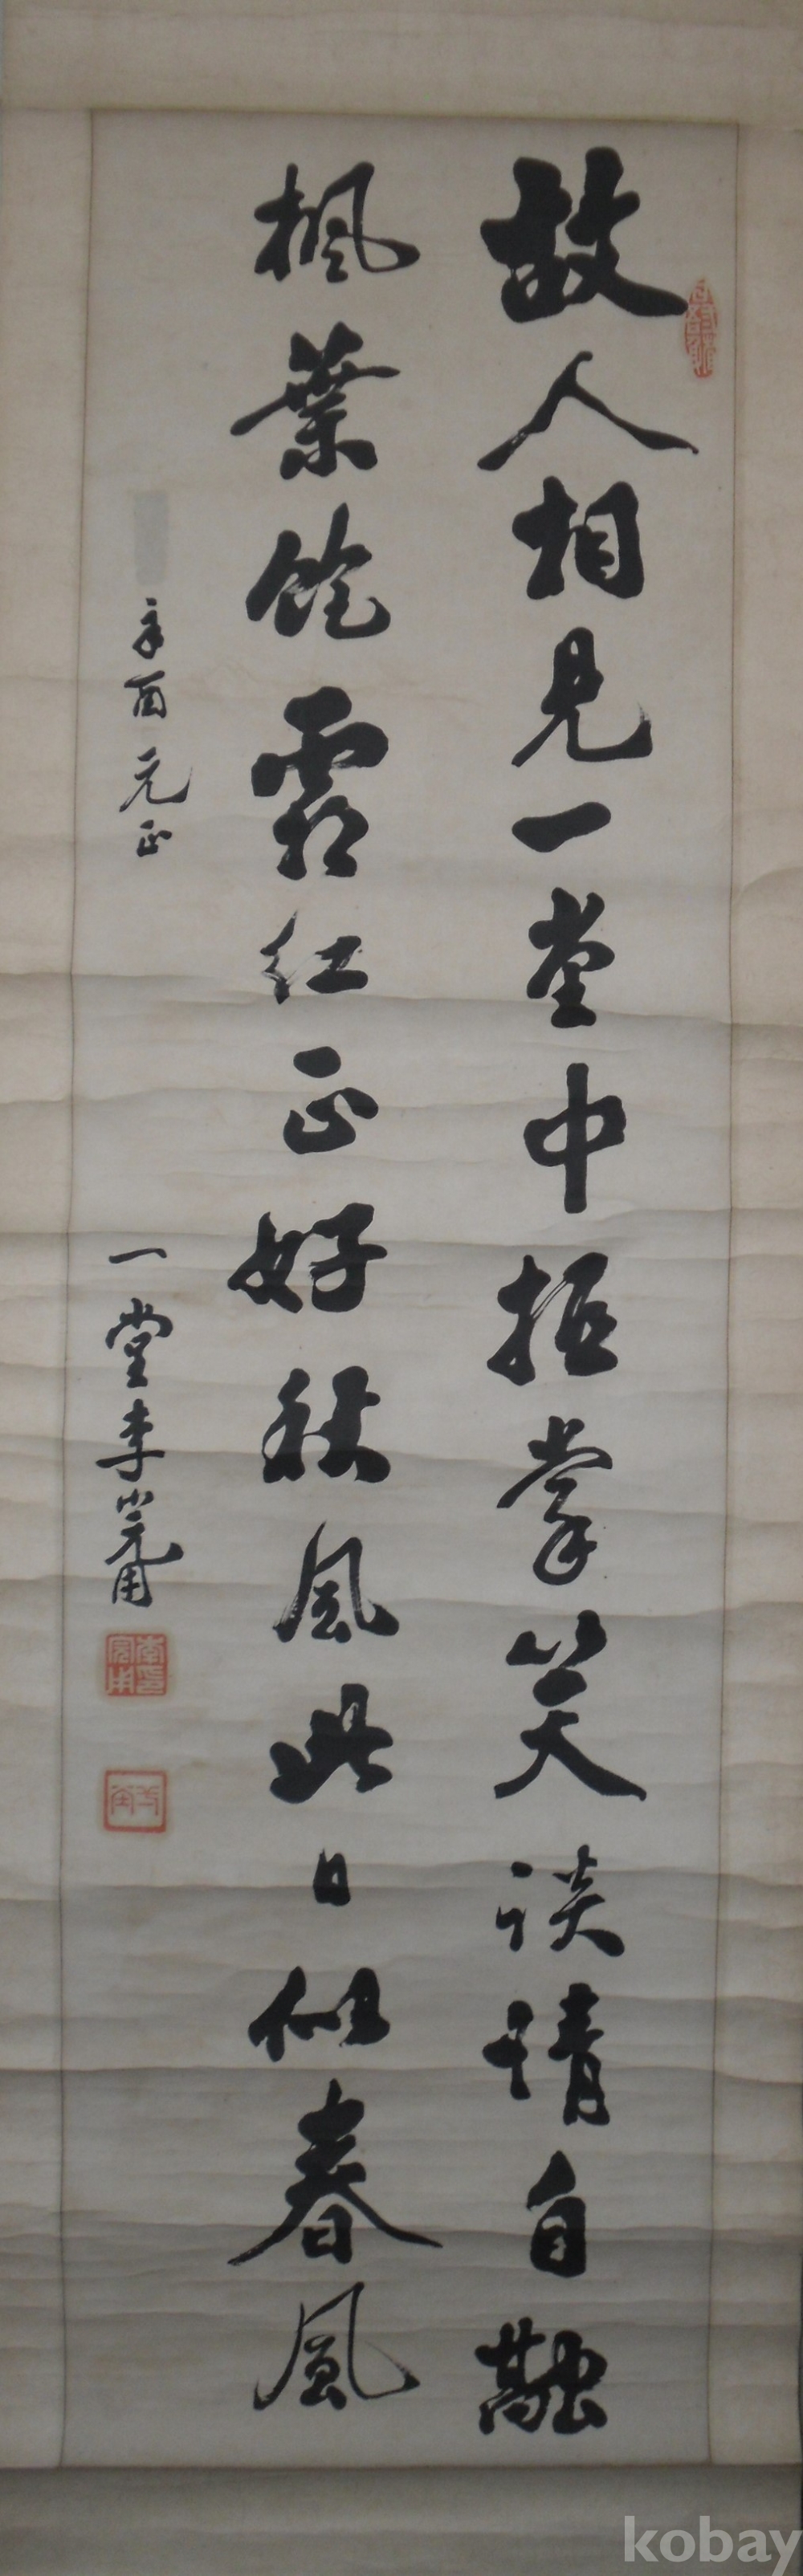 故人相見一堂中抵掌笑談情自融
楓葉飽霜紅正好秋風此日似春風
辛酉元正
一堂李完用
李完用印
kobay